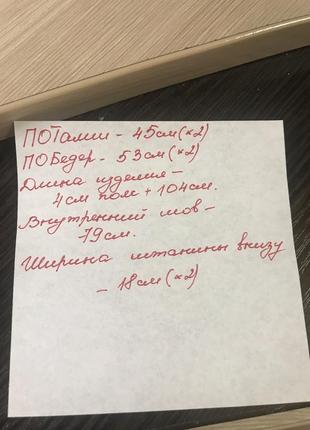 ПОТалии - 45см(×2)
ПОБедер - 53см(×2)
Длина изделия -
4см пояс + 104см.
Внутренний шов -
- 79см.
Ширина штанины внизу
- 18см(×2)